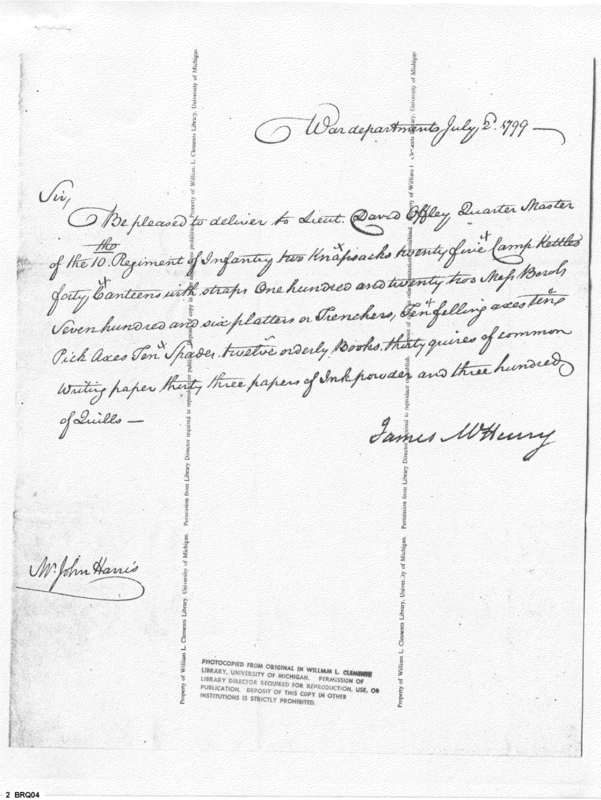 War department July 2d. 1799 —
Sir,
Be pleased to deliver to Lieut. David Offley Quarter Master
tho
of the 10. Regiment of Infantry two Knapsacks twenty five Camp Kettles
forty Canteens with straps One hundred and twenty two Mess Bowls
Seven hundred and six platters or Trenchers, Ten felling axes ten
Pick Axes Ten Spades twelve orderly Books thirty quires of common
Writing paper thirty three papers of Ink powder and three hundred
of Quills —
James McHenry
Mr. John Harris
Property of William L. Clements Library, University of Michigan. Permission from Library Director required to reproduce or publish. Deposit of copy in prohibited. Property of William L. Clements Library, University of Michigan
Property of William L. Clements Library, University of Michigan. Permission from Library Director required to reproduce or publish. prohibited. Property of William L. Clements Library, University of Michigan
PHOTOCOPIED FROM ORIGINAL IN WILLIAM L. CLEMENTS
LIBRARY, UNIVERSITY OF MICHIGAN. PERMISSION OF
LIBRARY DIRECTOR REQUIRED FOR REPRODUCTION, USE, OR
PUBLICATION. DEPOSIT OF THIS COPY IN OTHER
INSTITUTIONS IS STRICTLY PROHIBITED.
2 BRQ04